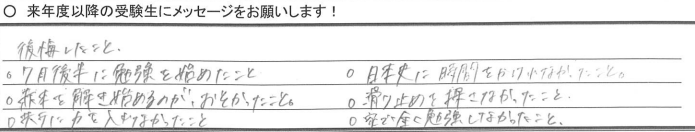 〇 来年度以降の受験生にメッセージをお願いします！
後悔したこと.
○ 7月後半に勉強を始めたこと
○ 日本史に時間をかけなかったこと。
○ 赤本を解き始めるのが、おそかったこと。
○ 滑り止めを探さなかったこと.
○ 英に力を入れなかったこと
○ 家で全く勉強しなかったこと.